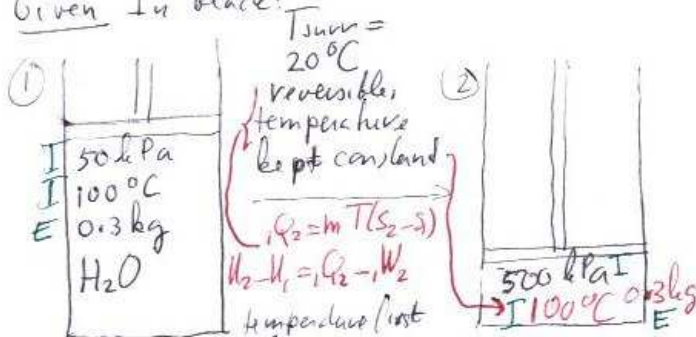 Given In black:
Tsurr =
20°C
① ②
reversible,
temperature
kept constant
I 50 kPa
I 100°C
E 0.3 kg
H₂O
₁Q₂ = m T(s₂-s₁)
U₂-U₁ = ₁Q₂ - ₁W₂
temperature
500 kPa I
I 100°C 0.3kg
E